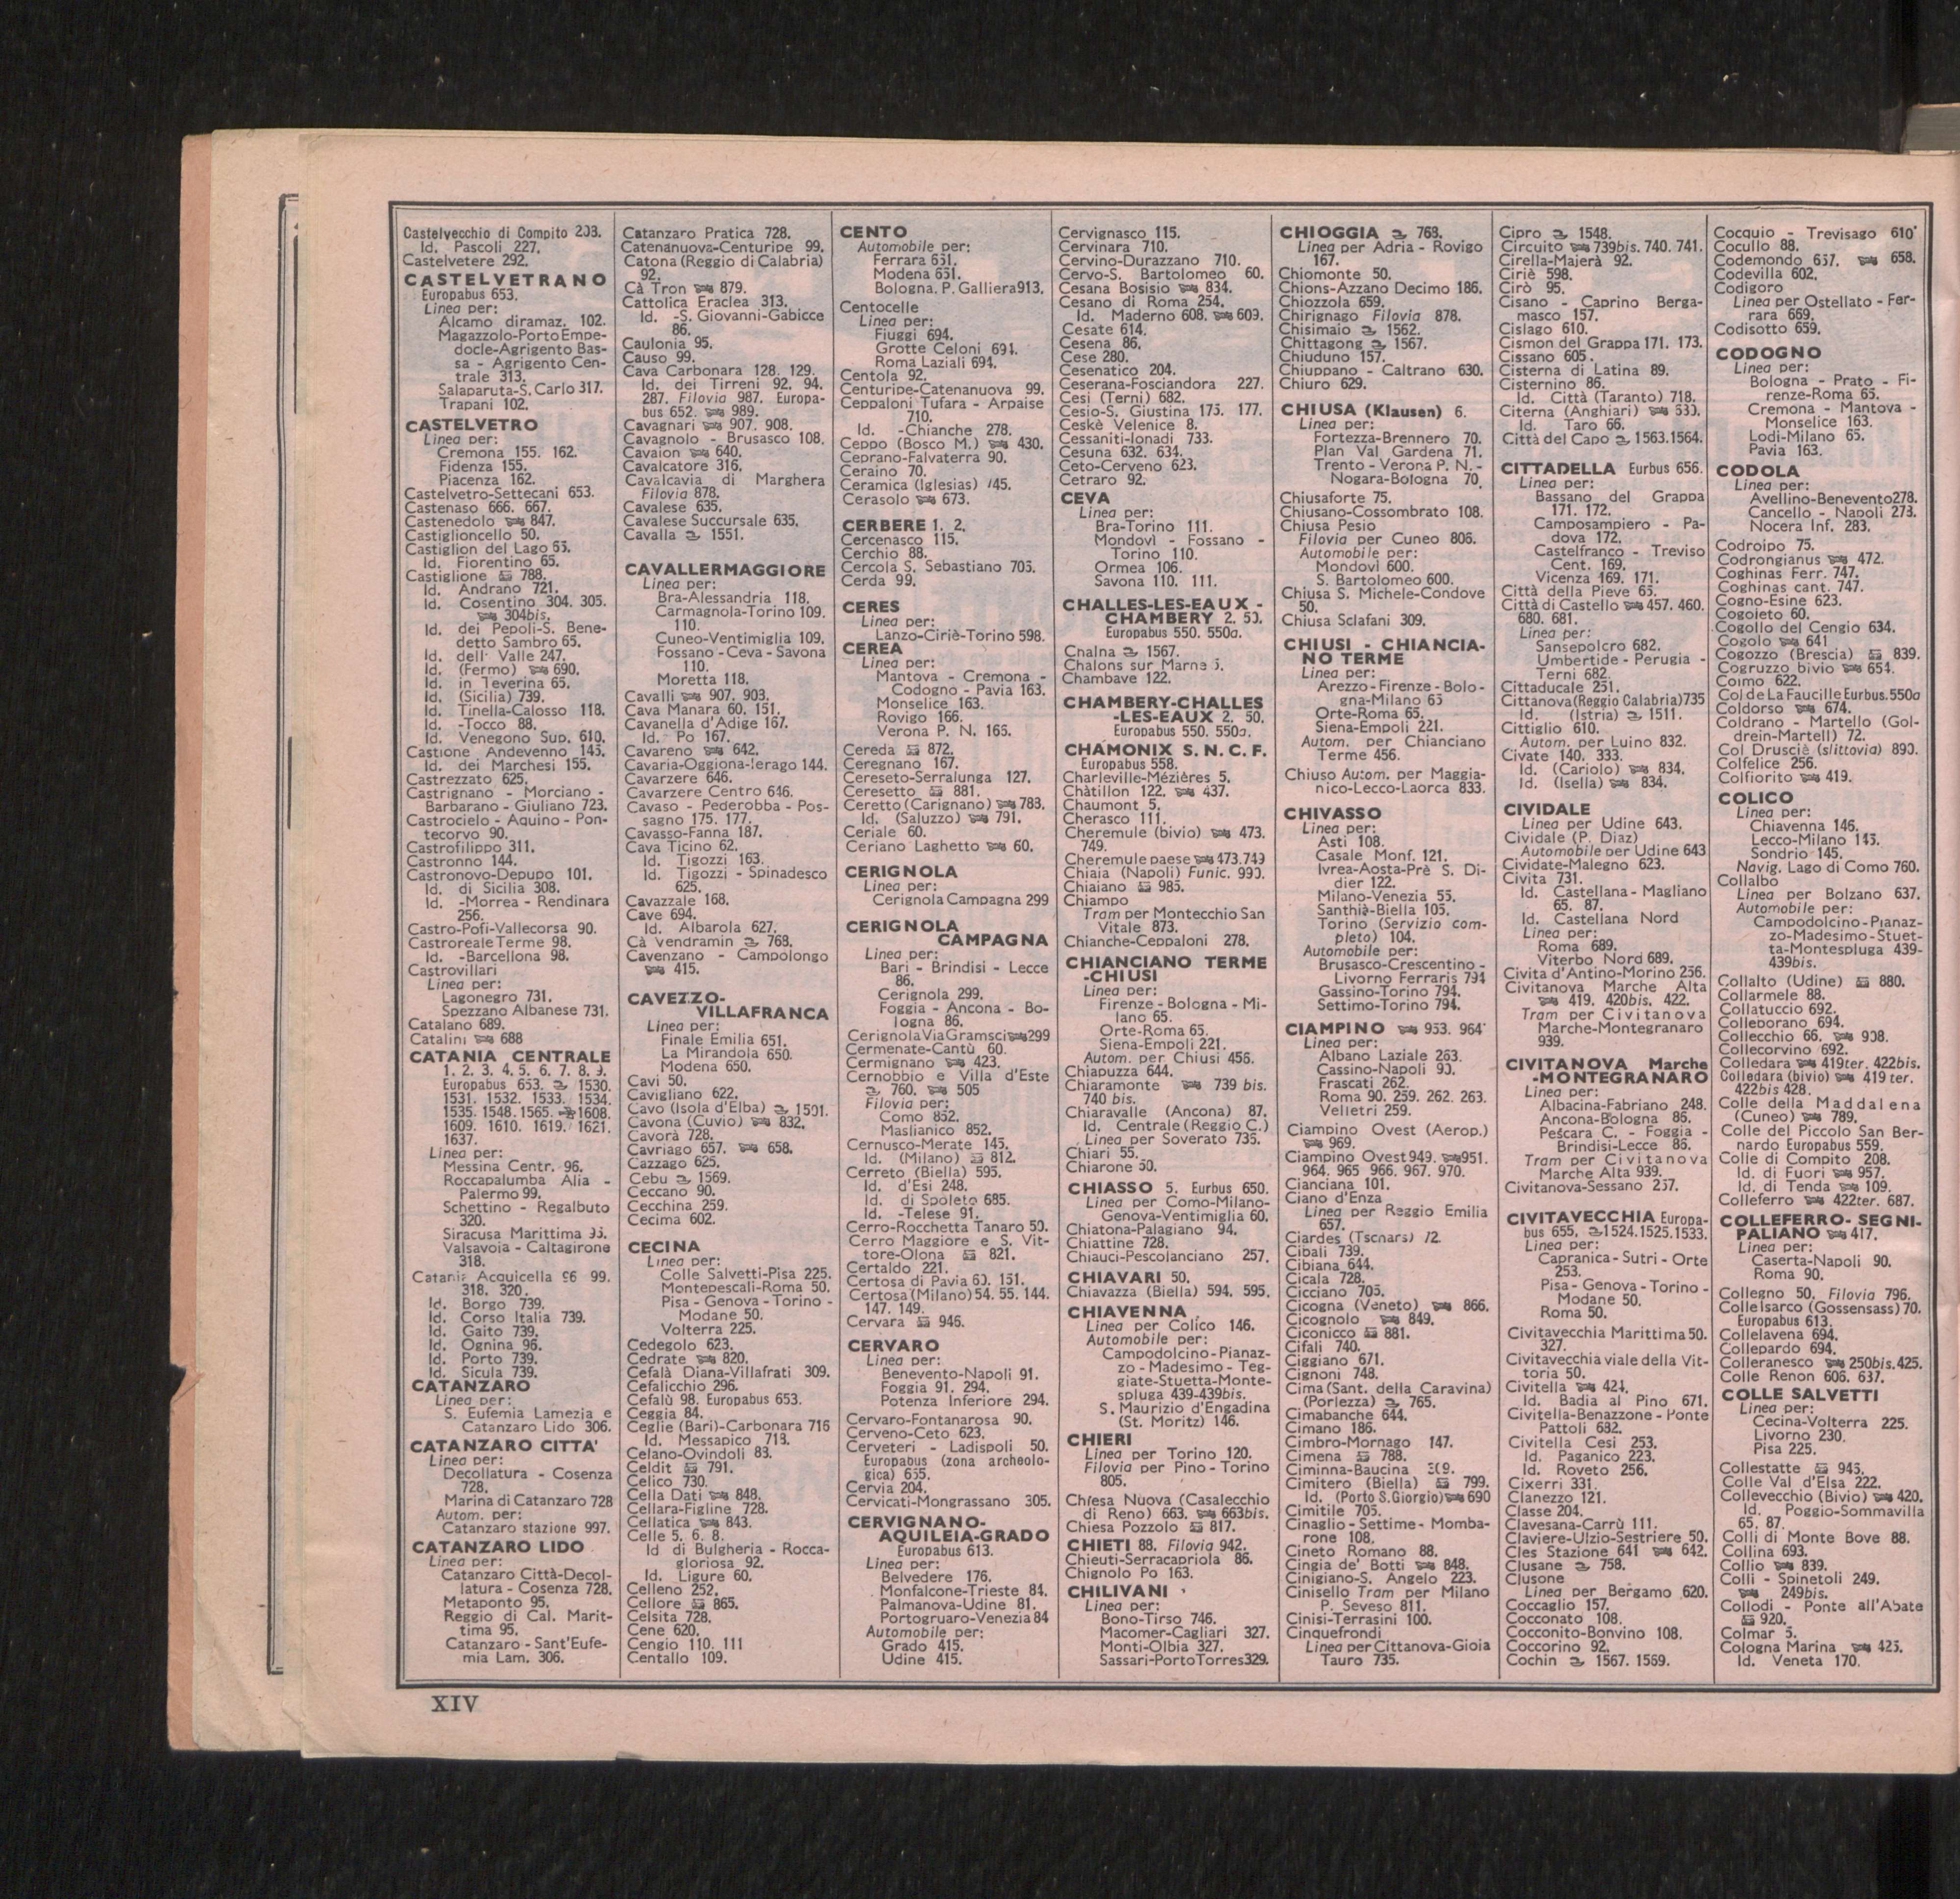 Castelvecchio di Compito 203.
Id. Pascoli 227.
Castelvetere 292.
CASTELVETRANO
Europabus 653.
Linea per:
Alcamo diramaz. 102.
Magazzolo-Porto Empe-
docle-Agrigento Bas-
sa - Agrigento Cen-
trale 313.
Salaparuta-S. Carlo 317.
Trapani 102.
CASTELVETRO
Linea per:
Cremona 155. 162.
Fidenza 155.
Piacenza 162.
Castelvetro-Settecani 653.
Castenaso 666. 667.
Castenedolo 847.
Castiglioncello 50.
Castiglion del Lago 65.
Id. Fiorentino 65.
Castiglione 788.
Id. Andrano 721.
Id. Cosentino 304. 305.
304bis.
Id. dei Pepoli-S. Bene-
detto Sambro 65.
Id. dell' Valle 247.
Id. (Fermo) 690.
Id. in Teverina 65.
Id. (Sicilia) 739.
Id. Tinella-Calosso 118.
Id. -Tocco 88.
Id. Venegono Sup. 610.
Castione Andevenno 145.
Id. dei Marchesi 155.
Castrezzato 625.
Castrignano - Morciano -
Barbarano - Giuliano 723.
Castrocielo - Aquino - Pon-
tecorvo 90.
Castrofilippo 311.
Castronno 144.
Castronovo-Depupo 101.
Id. di Sicilia 308.
Id. -Morrea - Rendinara
256.
Castro-Pofi-Vallecorsa 90.
Castroreale Terme 98.
Id. -Barcellona 98.
Castrovillari
Linea per:
Lagonegro 731.
Spezzano Albanese 731.
Catalano 689.
Catalini 688
CATANIA CENTRALE
1. 2. 3. 4. 5. 6. 7. 8. 9.
Europabus 653. 1530.
1531. 1532. 1533. 1534.
1535. 1548. 1565. 1608.
1609. 1610. 1619. 1621.
1637.
Linea per:
Messina Centr. 96.
Roccapalumba Alia -
Palermo 99.
Schettino - Regalbuto
320.
Siracusa Marittima
Valsavoia - Caltagirone
318.
Catania Acquicella 96 99.
318. 320.
Id. Borgo 739.
Id. Corso Italia 739.
Id. Gaito 739.
Id. Ognina 96.
Id. Porto 739.
Id. Sicula 739.
CATANZARO
Linea per:
S. Eufemia Lamezia e
Catanzaro Lido 306.
CATANZARO CITTA'
Linea per:
Decollatura - Cosenza
728.
Marina di Catanzaro 728
Autom. per:
Catanzaro stazione 997.
CATANZARO LIDO
Linea per:
Catanzaro Città-Decol-
latura - Cosenza 728.
Metaponto 95.
Reggio di Cal. Marit-
tima 95.
Catanzaro - Sant'Eufe-
mia Lam. 306.
Catanzaro Pratica 728.
Catenanuova-Centuripe 99.
Catona (Reggio di Calabria)
92.
Cà Tron 879.
Cattolica Eraclea 313.
Id. -S. Giovanni-Gabicce
86.
Caulonia 95.
Causo 99.
Cava Carbonara 128. 129.
Id. dei Tirreni 92. 94.
287. Filovia 987. Europa-
bus 652. 989.
Cavagnari 907. 908.
Cavagnolo - Brusasco 108.
Cavaion 640.
Cavalcatore 316.
Cavalcavia di Marghera
Filovia 878.
Cavalese 635.
Cavalese Succursale 635.
Cavalla 1551.
CAVALLERMAGGIORE
Linea per:
Bra-Alessandria 118.
Carmagnola-Torino 109.
110.
Cuneo-Ventimiglia 109.
Fossano - Ceva - Savona
110.
Moretta 118.
Cavalli 907. 903.
Cava Manara 60. 151.
Cavanella d'Adige 167.
Id. Po 167.
Cavareno 642.
Cavaria-Oggiona-Ierago 144.
Cavarzere 646.
Cavarzere Centro 646.
Cavaso - Pederobba - Pos-
sagno 175. 177.
Cavasso-Fanna 187.
Cava Ticino 62.
Id. Tigozzi 163.
Id. Tigozzi - Spinadesco
625.
Cavazzale 168.
Cave 694.
Id. Albarola 627.
Cà Vendramin 768.
Cavenzano - Campolongo
415.
CAVEZZO-
VILLAFRANCA
Linea per:
Finale Emilia 651.
La Mirandola 650.
Modena 650.
Cavi 50.
Cavigliano 622.
Cavo (Isola d'Elba) 1501.
Cavona (Cuvio) 832.
Cavorà 728.
Cavriago 657. 658.
Cazzago 625.
Cebu 1569.
Ceccano 90.
Cecchina 259.
Cecima 602.
CECINA
Linea per:
Colle Salvetti-Pisa 225.
Montepescali-Roma 50.
Pisa - Genova - Torino -
Modane 50.
Volterra 225.
Cedegolo 623.
Cedrate 820.
Cefalà Diana-Villafrati 309.
Cefalicchio 296.
Cefalù 98. Europabus 653.
Ceggia 84.
Ceglie (Bari)-Carbonara 716
Id. Messapico 718.
Celano-Ovindoli 83.
Celdit 791.
Celico 730.
Cella Dati 848.
Cellara-Figline 728.
Cellatica 843.
Celle 5. 6. 8.
Id di Bulgheria - Rocca-
gloriosa 92.
Id. Ligure 60.
Celleno 252.
Cellore 865.
Celsita 728.
Cene 620.
Cengio 110. 111
Centallo 109.
CENTO
Automobile per:
Ferrara 651.
Modena 651.
Bologna. P. Galliera 913.
Centocelle
Linea per:
Fiuggi 694.
Grotte Celoni 694.
Roma Laziali 694.
Centola 92.
Centuripe-Catenanuova 99.
Ceppaloni Tufara - Arpaise
710.
Id. -Chianche 278.
Ceppo (Bosco M.) 430.
Ceprano-Falvaterra 90.
Ceraino 70.
Ceramica (Iglesias) 745.
Cerasolo 673.
CERBERE 1. 2.
Cercenasco 115.
Cerchio 88.
Cercola S. Sebastiano 705.
Cerda 99.
CERES
Linea per:
Lanzo-Ciriè-Torino 598.
CEREA
Linea per:
Mantova - Cremona -
Codogno - Pavia 163.
Monselice 163.
Rovigo 166.
Verona P. N. 166.
Cereda 872.
Ceregnano 167.
Cereseto-Serralunga 127.
Ceresetto 881.
Ceretto (Carignano) 783.
Id. (Saluzzo) 791.
Ceriale 60.
Ceriano Laghetto 60.
CERIGNOLA
Linea per:
Cerignola Campagna 299
CERIGNOLA
CAMPAGNA
Linea per:
Bari - Brindisi - Lecce
86.
Cerignola 299.
Foggia - Ancona - Bo-
logna 86.
Cerignola Via Gramsci 299
Cermenate-Cantù 60.
Cermignano 423.
Cernobbio e Villa d'Este
760. 505
Filovia per:
Como 852.
Maslianico 852.
Cernusco-Merate 145.
Id. (Milano) 812.
Cerreto (Biella) 595.
Id. d'Esi 248.
Id. di Spoleto 685.
Id. -Telese 91.
Cerro-Rocchetta Tanaro 50.
Cerro Maggiore e S. Vit-
tore-Olona 821.
Certaldo 221.
Certosa di Pavia 60. 151.
Certosa (Milano) 54. 55. 144.
147. 149.
Cervara 946.
CERVARO
Linea per:
Benevento-Napoli 91.
Foggia 91. 294.
Potenza Inferiore 294.
Cervaro-Fontanarosa 90.
Cerveno-Ceto 623.
Cerveteri - Ladispoli 50.
Europabus (zona archeolo-
gica) 655.
Cervia 204.
Cervicati-Mongrassano 305.
CERVIGNANO-
AQUILEIA-GRADO
Europabus 613.
Linea per:
Belvedere 176.
Monfalcone-Trieste 84.
Palmanova-Udine 81.
Portogruaro-Venezia 84
Automobile per:
Grado 415.
Udine 415.
Cervignasco 115.
Cervinara 710.
Cervino-Durazzano 710.
Cervo-S. Bartolomeo 60.
Cesana Bosisio 834.
Cesano di Roma 254.
Id. Maderno 608. 609.
Cesate 614.
Cesena 86.
Cese 280.
Cesenatico 204.
Ceserana-Fosciandora 227.
Cesi (Terni) 682.
Cesio-S. Giustina 175. 177.
Ceskè Velenice 8.
Cessaniti-Ionadi 733.
Cesuna 632. 634.
Ceto-Cerveno 623.
Cetraro 92.
CEVA
Linea per:
Bra-Torino 111.
Mondovì - Fossano -
Torino 110.
Ormea 106.
Savona 110. 111.
CHALLES-LES-EAUX -
CHAMBERY 2. 50.
Europabus 550. 550a.
Chalna 1567.
Chalons sur Marne 5.
Chambave 122.
CHAMBERY-CHALLES
-LES-EAUX 2. 50.
Europabus 550. 550a.
CHAMONIX S. N. C. F.
Europabus 558.
Charleville-Mézières 5.
Châtillon 122. 437.
Chaumont 5.
Cherasco 111.
Cheremule (bivio) 473.
749.
Cheremule paese 473.749
Chiaia (Napoli) Funic. 990.
Chiaiano 985.
Chiampo
Tram per Montecchio San
Vitale 873.
Chianche-Ceppaloni 278.
CHIANCIANO TERME
-CHIUSI
Linea per:
Firenze - Bologna - Mi-
lano 65.
Orte-Roma 65.
Siena-Empoli 221.
Autom. per Chiusi 456.
Chiapuzza 644.
Chiaramonte 739 bis.
740 bis.
Chiaravalle (Ancona) 87.
Id. Centrale (Reggio C.)
Linea per Soverato 735.
Chiari 55.
Chiarone 50.
CHIASSO 5. Eurbus 650.
Linea per Como-Milano-
Genova-Ventimiglia 60.
Chiatona-Palagiano 94.
Chiattine 728.
Chiauci-Pescolanciano 257.
CHIAVARI 50.
Chiavazza (Biella) 594. 595.
CHIAVENNA
Linea per Colico 146.
Automobile per:
Campodolcino-Pianaz-
zo - Madesimo - Teg-
giate-Stuetta-Monte-
spluga 439-439bis.
S. Maurizio d'Engadina
(St. Moritz) 146.
CHIERI
Linea per Torino 120.
Filovia per Pino - Torino
805.
Chiesa Nuova (Casalecchio
di Reno) 663. 663bis.
Chiesa Pozzolo 817.
CHIETI 88. Filovia 942.
Chieuti-Serracapriola 86.
Chignolo Po 163.
CHILIVANI
Linea per:
Bono-Tirso 746.
Macomer-Cagliari 327.
Monti-Olbia 327.
Sassari-Porto Torres 329.
CHIOGGIA 768.
Linea per Adria - Rovigo
167.
Chiomonte 50.
Chions-Azzano Decimo 186.
Chiozzola 659.
Chirignago Filovia 878.
Chisimaio 1562.
Chittagong 1567.
Chiuduno 157.
Chiuppano - Caltrano 630.
Chiuro 629.
CHIUSA (Klausen) 6.
Linea per:
Fortezza-Brennero 70.
Plan Val Gardena 71.
Trento - Verona P. N.-
Nogara-Bologna 70.
Chiusaforte 75.
Chiusano-Cossombrato 108.
Chiusa Pesio
Filovia per Cuneo 806.
Automobile per:
Mondovì 600.
S. Bartolomeo 600.
Chiusa S. Michele-Condove
50.
Chiusa Sclafani 309.
CHIUSI - CHIANCIA-
NO TERME
Linea per:
Arezzo-Firenze-Bolo-
gna-Milano 65
Orte-Roma 65.
Siena-Empoli 221.
Autom. per Chianciano
Terme 456.
Chiuso Autom. per Maggia-
nico-Lecco-Laorca 833.
CHIVASSO
Linea per:
Asti 108.
Casale Monf. 121.
Ivrea-Aosta-Prè S. Di-
dier 122.
Milano-Venezia 55.
Santhià-Biella 105.
Torino (Servizio com-
pleto) 104.
Automobile per:
Brusasco-Crescentino -
Livorno Ferraris 794
Gassino-Torino 794.
Settimo-Torino 794.
CIAMPINO 953. 964
Linea per:
Albano Laziale 263.
Cassino-Napoli 90.
Frascati 262.
Roma 90. 259. 262. 263.
Velletri 259.
Ciampino Ovest (Aerop.)
969.
Ciampino Ovest 949. 951.
964. 965 966. 967. 970.
Cianciana 101.
Ciano d'Enza
Linea per Reggio Emilia
657.
Ciardes (Tschars) 72.
Cibali 739.
Cibiana 644.
Cicala 728.
Cicciano 705.
Cicogna (Veneto) 866.
Cicognolo 849.
Ciconicco 881.
Cifali 740.
Ciggiano 671.
Cignoni 748.
Cima (Sant. della Caravina)
(Porlezza) 765.
Cimabanche 644.
Cimano 186.
Cimbro-Mornago 147.
Cimena 788.
Ciminna-Baucina 309.
Cimitero (Biella) 799.
Id. (Porto S.Giorgio) 690
Cimitile 705.
Cinaglio - Settime - Momba-
rone 108.
Cineto Romano 88.
Cingia de' Botti 848.
Cinigiano-S. Angelo 223.
Cinisello Tram per Milano
P. Seveso 811.
Cinisi-Terrasini 100.
Cinquefrondi
Linea per Cittanova-Gioia
Tauro 735.
Cipro 1548.
Circuito 739bis. 740. 741.
Cirella-Majerà 92.
Ciriè 598.
Cirò 95.
Cisano - Caprino Berga-
masco 157.
Cislago 610.
Cismon del Grappa 171. 173.
Cissano 605.
Cisterna di Latina 89.
Cisternino 86.
Id. Città (Taranto) 718.
Citerna (Anghiari)
Id. Taro 66.
Città del Capo 1563.1564.
CITTADELLA Eurbus 656.
Linea per:
Bassano del Grappa
171. 172.
Camposampiero - Pa-
dova 172.
Castelfranco - Treviso
Cent. 169.
Vicenza 169. 171.
Città della Pieve 65.
Città di Castello 457. 460.
680. 681.
Linea per:
Sansepolcro 682.
Umbertide - Perugia -
Terni 682.
Cittaducale 251.
Cittanova (Reggio Calabria) 735
Id. (Istria) 1511.
Cittiglio 610.
Autom. per Luino 832.
Civate 140. 333.
Id. (Cariolo) 834.
Id. (Isella) 834.
CIVIDALE
Linea per Udine 643.
Cividale (P. Diaz)
Automobile per Udine 643
Cividate-Malegno 623.
Civita 731.
Id. Castellana - Magliano
65. 87.
Id. Castellana Nord
Linea per:
Roma 689.
Viterbo Nord 689.
Civita d'Antino-Morino 256.
Civitanova Marche Alta
419. 420bis. 422.
Tram per Civitanova
Marche-Montegranaro
939.
CIVITANOVA Marche
-MONTEGRANARO
Linea per:
Albacina-Fabriano 248.
Ancona-Bologna 86.
Pescara C. - Foggia -
Brindisi-Lecce 86.
Tram per Civitanova
Marche Alta 939.
Civitanova-Sessano 257.
CIVITAVECCHIA Europa-
bus 655. 1524.1525.1533.
Linea per:
Capranica - Sutri - Orte
253.
Pisa - Genova - Torino -
Modane 50.
Roma 50.
Civitavecchia Marittima 50.
327.
Civitavecchia viale della Vit-
toria 50.
Civitella 424.
Id. Badia al Pino 671.
Civitella-Benazzone - Ponte
Pattoli 682.
Civitella Cesi 253.
Id. Paganico 223.
Id. Roveto 256.
Cixerri 331.
Clanezzo 121.
Classe 204.
Clavesana-Carrù 111.
Claviere-Ulzio-Sestriere 50.
Cles Stazione 641 642.
Clusane 758.
Clusone
Linea per Bergamo 620.
Coccaglio 157.
Cocconato 108.
Cocconito-Bonvino 108.
Coccorino 92.
Cochin 1567. 1569.
Cocquio - Trevisago 610
Cocullo 88.
Codemondo 657. 658.
Codevilla 602.
Codigoro
Linea per Ostellato - Fer-
rara 669.
Codisotto 659.
CODOGNO
Linea per:
Bologna - Prato - Fi-
renze-Roma 65.
Cremona - Mantova -
Monselice 163.
Lodi-Milano 65.
Pavia 163.
CODOLA
Linea per:
Avellino-Benevento 278.
Cancello - Napoli 273.
Nocera Inf. 283.
Codroipo 75.
Codrongianus 472.
Coghinas Ferr. 747.
Coghinas cant. 747.
Cogno-Esine 623.
Cogoleto 60.
Cogollo del Cengio 634.
Cogolo 641
Cogozzo (Brescia) 839.
Cogruzzo bivio 654.
Coimo 622.
Col de La Faucille Eurbus.550a
Coldorso 674.
Coldrano - Martello (Gol-
drein-Martell) 72.
Col Drusciè (slittovia) 890.
Colfelice 256.
Colfiorito 419.
COLICO
Linea per:
Chiavenna 146.
Lecco-Milano 145.
Sondrio 145.
Navig. Lago di Como 760.
Collalbo
Linea per Bolzano 637.
Automobile per:
Campodolcino-Pianaz-
zo-Madesimo-Stuet-
ta-Montespluga 439-
439bis.
Collalto (Udine) 880.
Collarmele 88.
Collatuccio 692.
Colleborano 694.
Collecchio 66. 908.
Collecorvino 692.
Colledara 419ter. 422bis.
Colledara (bivio) 419 ter.
422bis 428.
Colle della Maddalena
(Cuneo) 789.
Colle del Piccolo San Ber-
nardo Europabus 559.
Colle di Compito 208.
Id. di Fuori 957.
Id. di Tenda 109.
Colleferro 422ter. 687.
COLLEFERRO- SEGNI-
PALIANO 417.
Linea per:
Caserta-Napoli 90.
Roma 90.
Collegno 50. Filovia 796.
Colle Isarco (Gossensass) 70.
Europabus 613.
Collelavena 694.
Collepardo 694.
Colleranesco 250bis.425.
Colle Renon 606. 637.
COLLE SALVETTI
Linea per:
Cecina-Volterra 225.
Livorno 230.
Pisa 225.
Collestatte 945.
Colle Val d'Elsa 222.
Collevecchio (Bivio) 420.
Id. Poggio-Sommavilla
65. 87.
Colli di Monte Bove 88.
Collina 693.
Collio 839.
Colli - Spinetoli 249.
249bis.
Collodi - Ponte all'Abate
920.
Colmar 5.
Cologna Marina 425.
Id. Veneta 170.
XIV